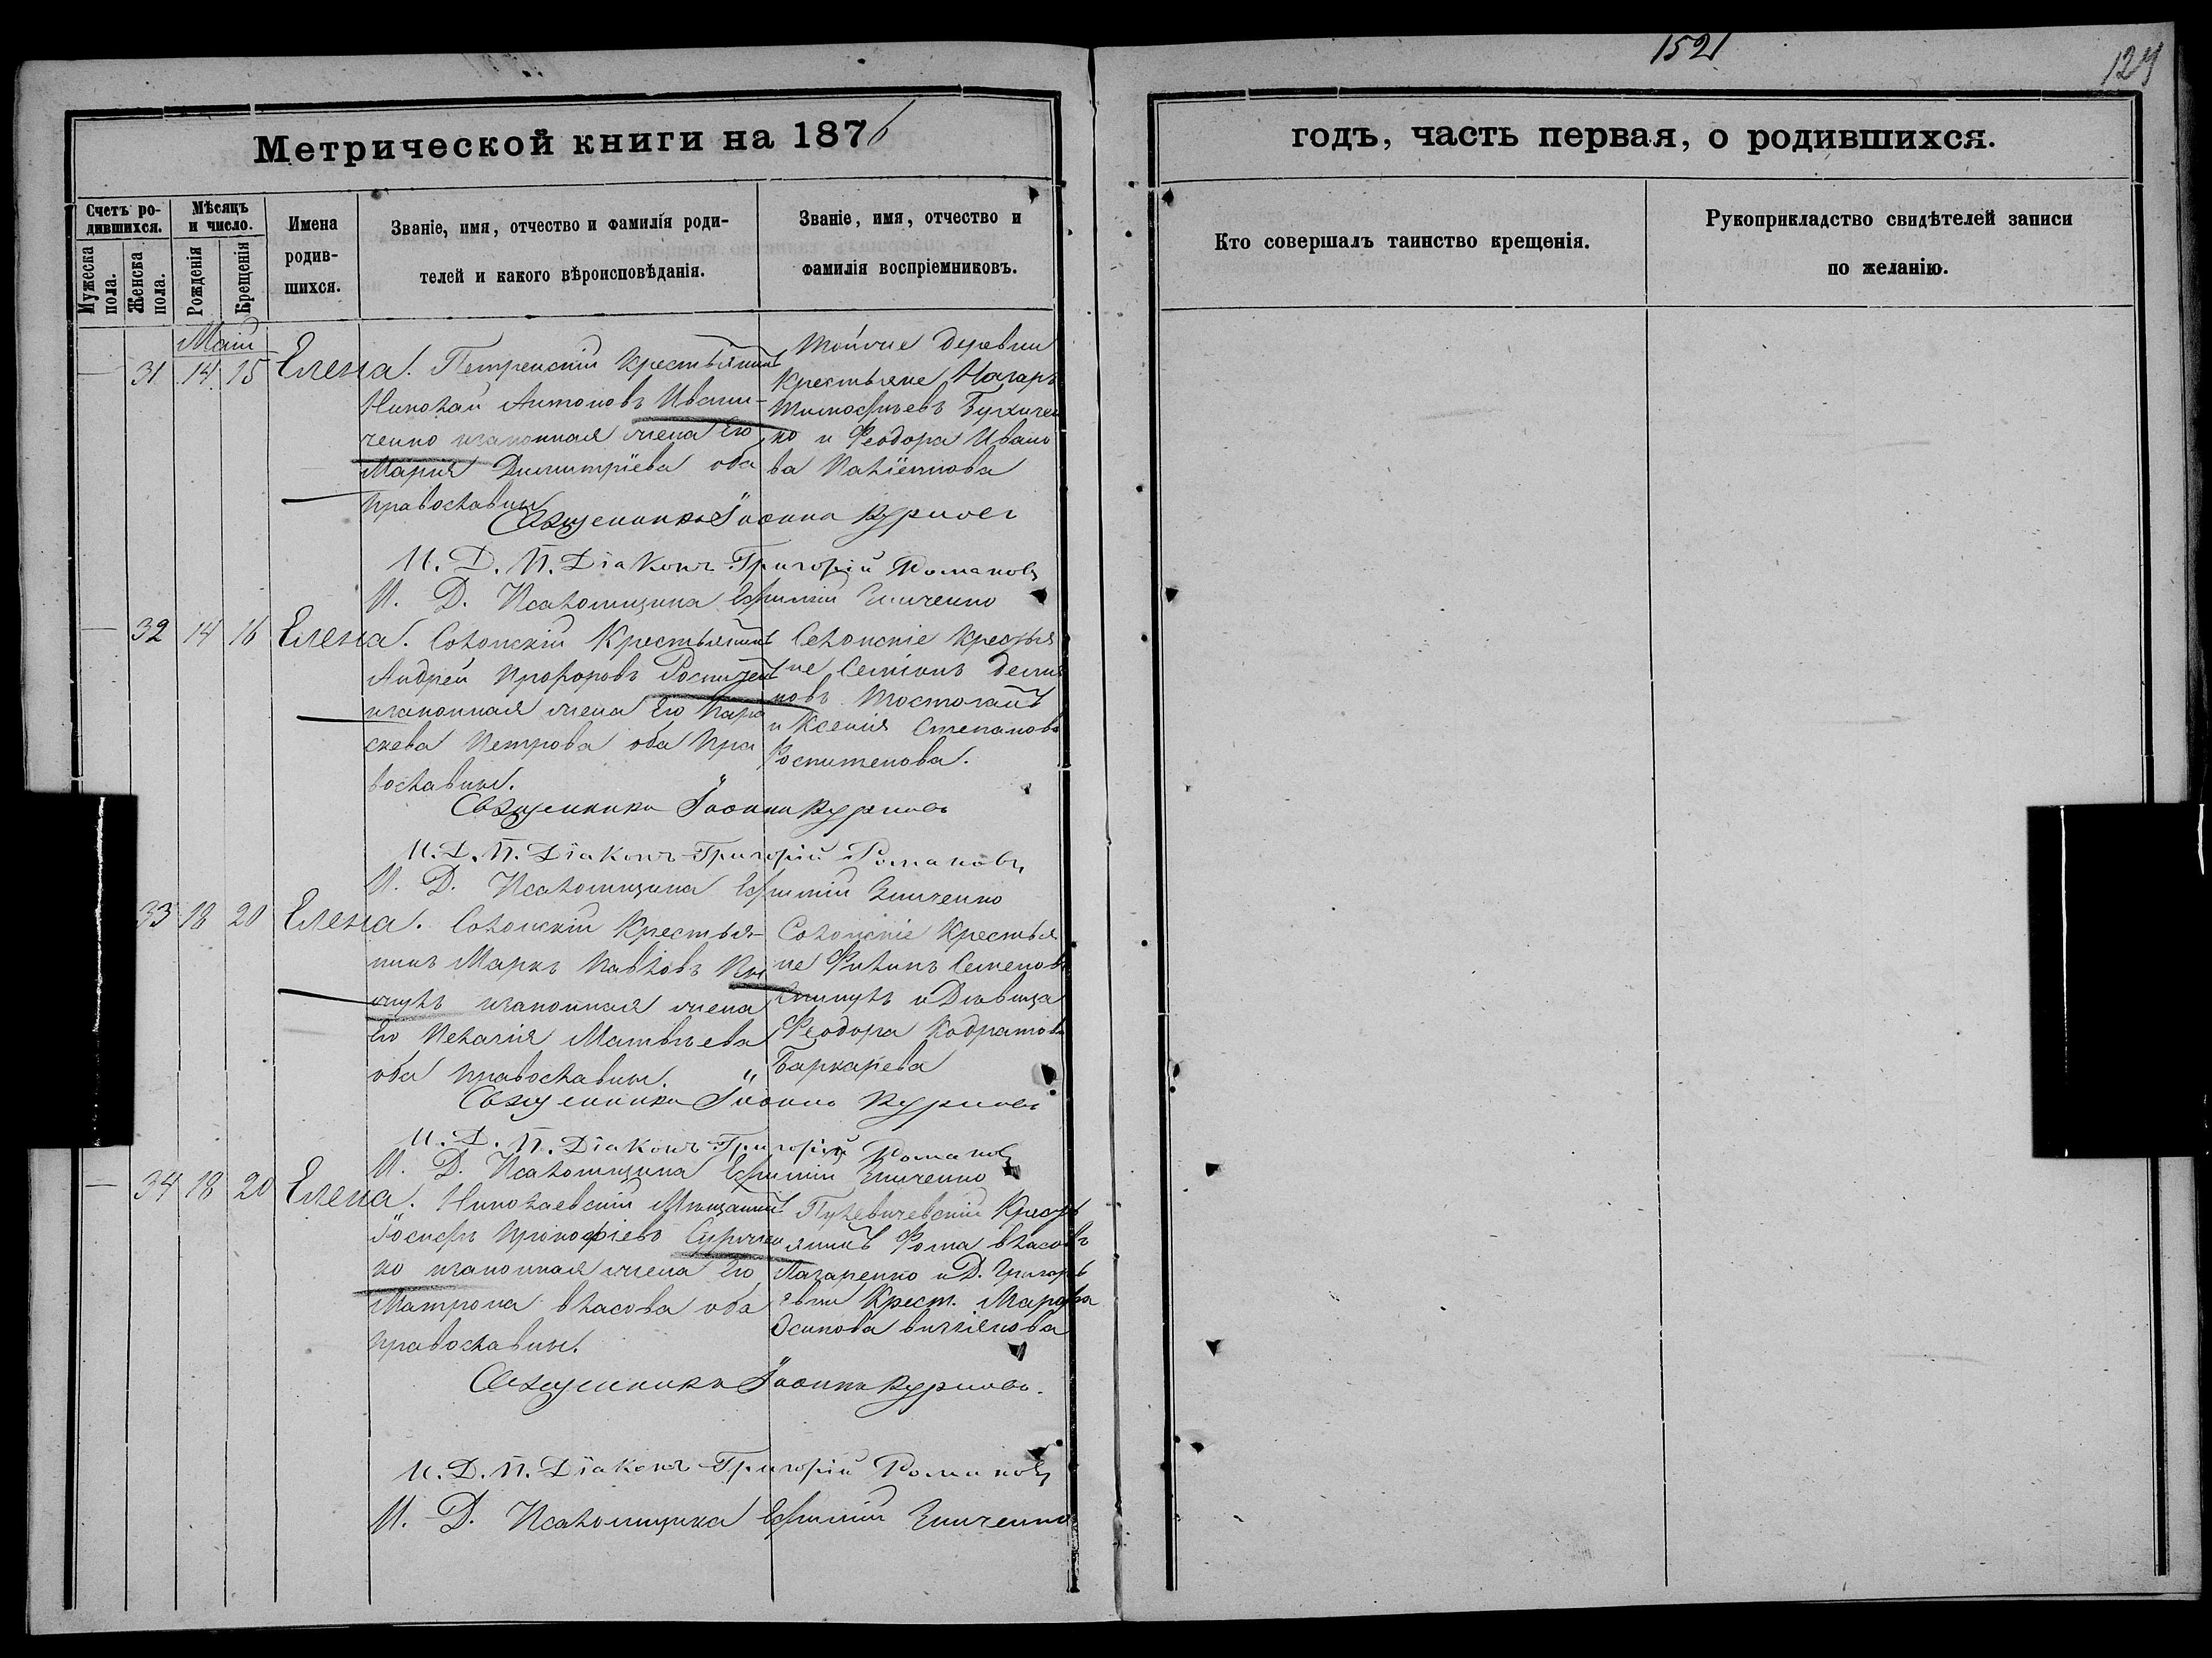 1521
124
Метрической книги на 1876
годъ, часть первая, о родившихся.
Счетъ родившихся.
Мужеска пола.
Женска пола.
Мѣсяцъ и число.
Рожденія
Крещенія
Имена родившихся.
Званіе, имя, отчество и фамилія родителей и какого вѣроисповѣданія.
Званіе, имя, отчество и фамилія воспріемниковъ.
Кто совершалъ таинство крещенія.
Рукоприкладство свидѣтелей записи по желанію.
Маій
31 14 15 Елена. Петренскій Крестьянинъ
Николай Антоновъ Ивани-
ченко и законная жена Его
Марія Димитріева оба
православны
Тойже деревни
Крестьяне Назаръ
Тимофѣевъ
ко и Феодора Ивано
ва
Священникъ Іоаннъ Куриловъ
И. Д. П. Діаконъ Григорій Романовъ
И. Д. Псаломщика Ефимій Зинченко
32 14 16 Елена. Солонскій Крестьянинъ
Андрей Прохоровъ
и законная жена Его Пара
скева Петрова оба пра
вославны.
Солонскіе Крестья
не Семіонъ Демья
новъ
и Ксенія Степанова
Священникъ Іоаннъ Куриловъ
И. Д. П. Діаконъ Григорій Романовъ
И. Д. Псаломщика Ефимій Зинченко
33 18 20 Елена. Солонскій Крестья-
нинъ Марко Павловъ
и законная жена
Его Пелагія Матвѣева
оба православны.
Солонскіе Крестья
не Филипъ Семеновъ
и Дѣвица
Феодора Кодратова
Баркарева
Священникъ Іоаннъ Куриловъ
И. Д. П. Діаконъ Григорій Романовъ
И. Д. Псаломщика Ефимій Зинченко
34 18 20 Елена. Николаевскій Мѣщанинъ
Іосифъ Прокофіевъ
ко и законная жена Его
Матрона Власова оба
православны.
Крестъ
янинъ Фома Власовъ
Лазаренко и Д. Григорь
евки Крест. Марфа
Осипова
Священникъ Іоаннъ Куриловъ.
И. Д. П. Діаконъ Григорій Романовъ
И. Д. Псаломщика Ефимій Зинченко